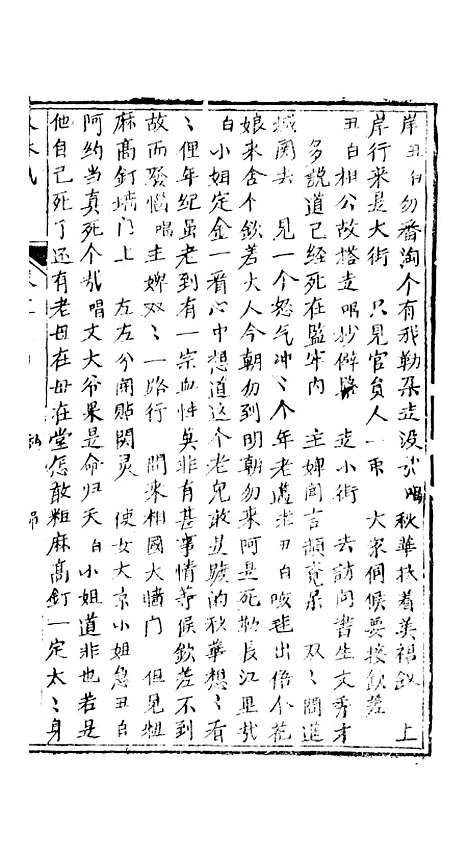 岸丑白勿番淘个有我勒朶走没於唱秋華扶着美裙釵　上
岸行来是大街　只見官負人一帀　大家伺候要接欽差
丑白相公故搭走唱抄僻路　走小街　去訪问書生文秀才
多説道已經死在監牢内　主婢闻言頗竟呆　双〻闻道
城関去　見一个怒气冲〻个年老蓋米丑白咳毡出倍个花
娘来舍个欽差大人今朝勿到明朝勿来阿是死勒長江里哉
白小姐定金一看心中想道这个老兒敢是駿的秋華想〻看
〻俚年纪虽老到有一宗血性莫非有甚事情等候欽差不到
故而發惱唱主婢双〻一路行　闻来相國大牆门　但見粗
麻高釘墻门上　左左分開貼閥灵　使女大京小姐急丑白
阿约当真死个哉唱文大爷果是命归天白小姐道非也若是
他自己死了还有老母在母在堂怎敢粗麻高釘一定太〻身